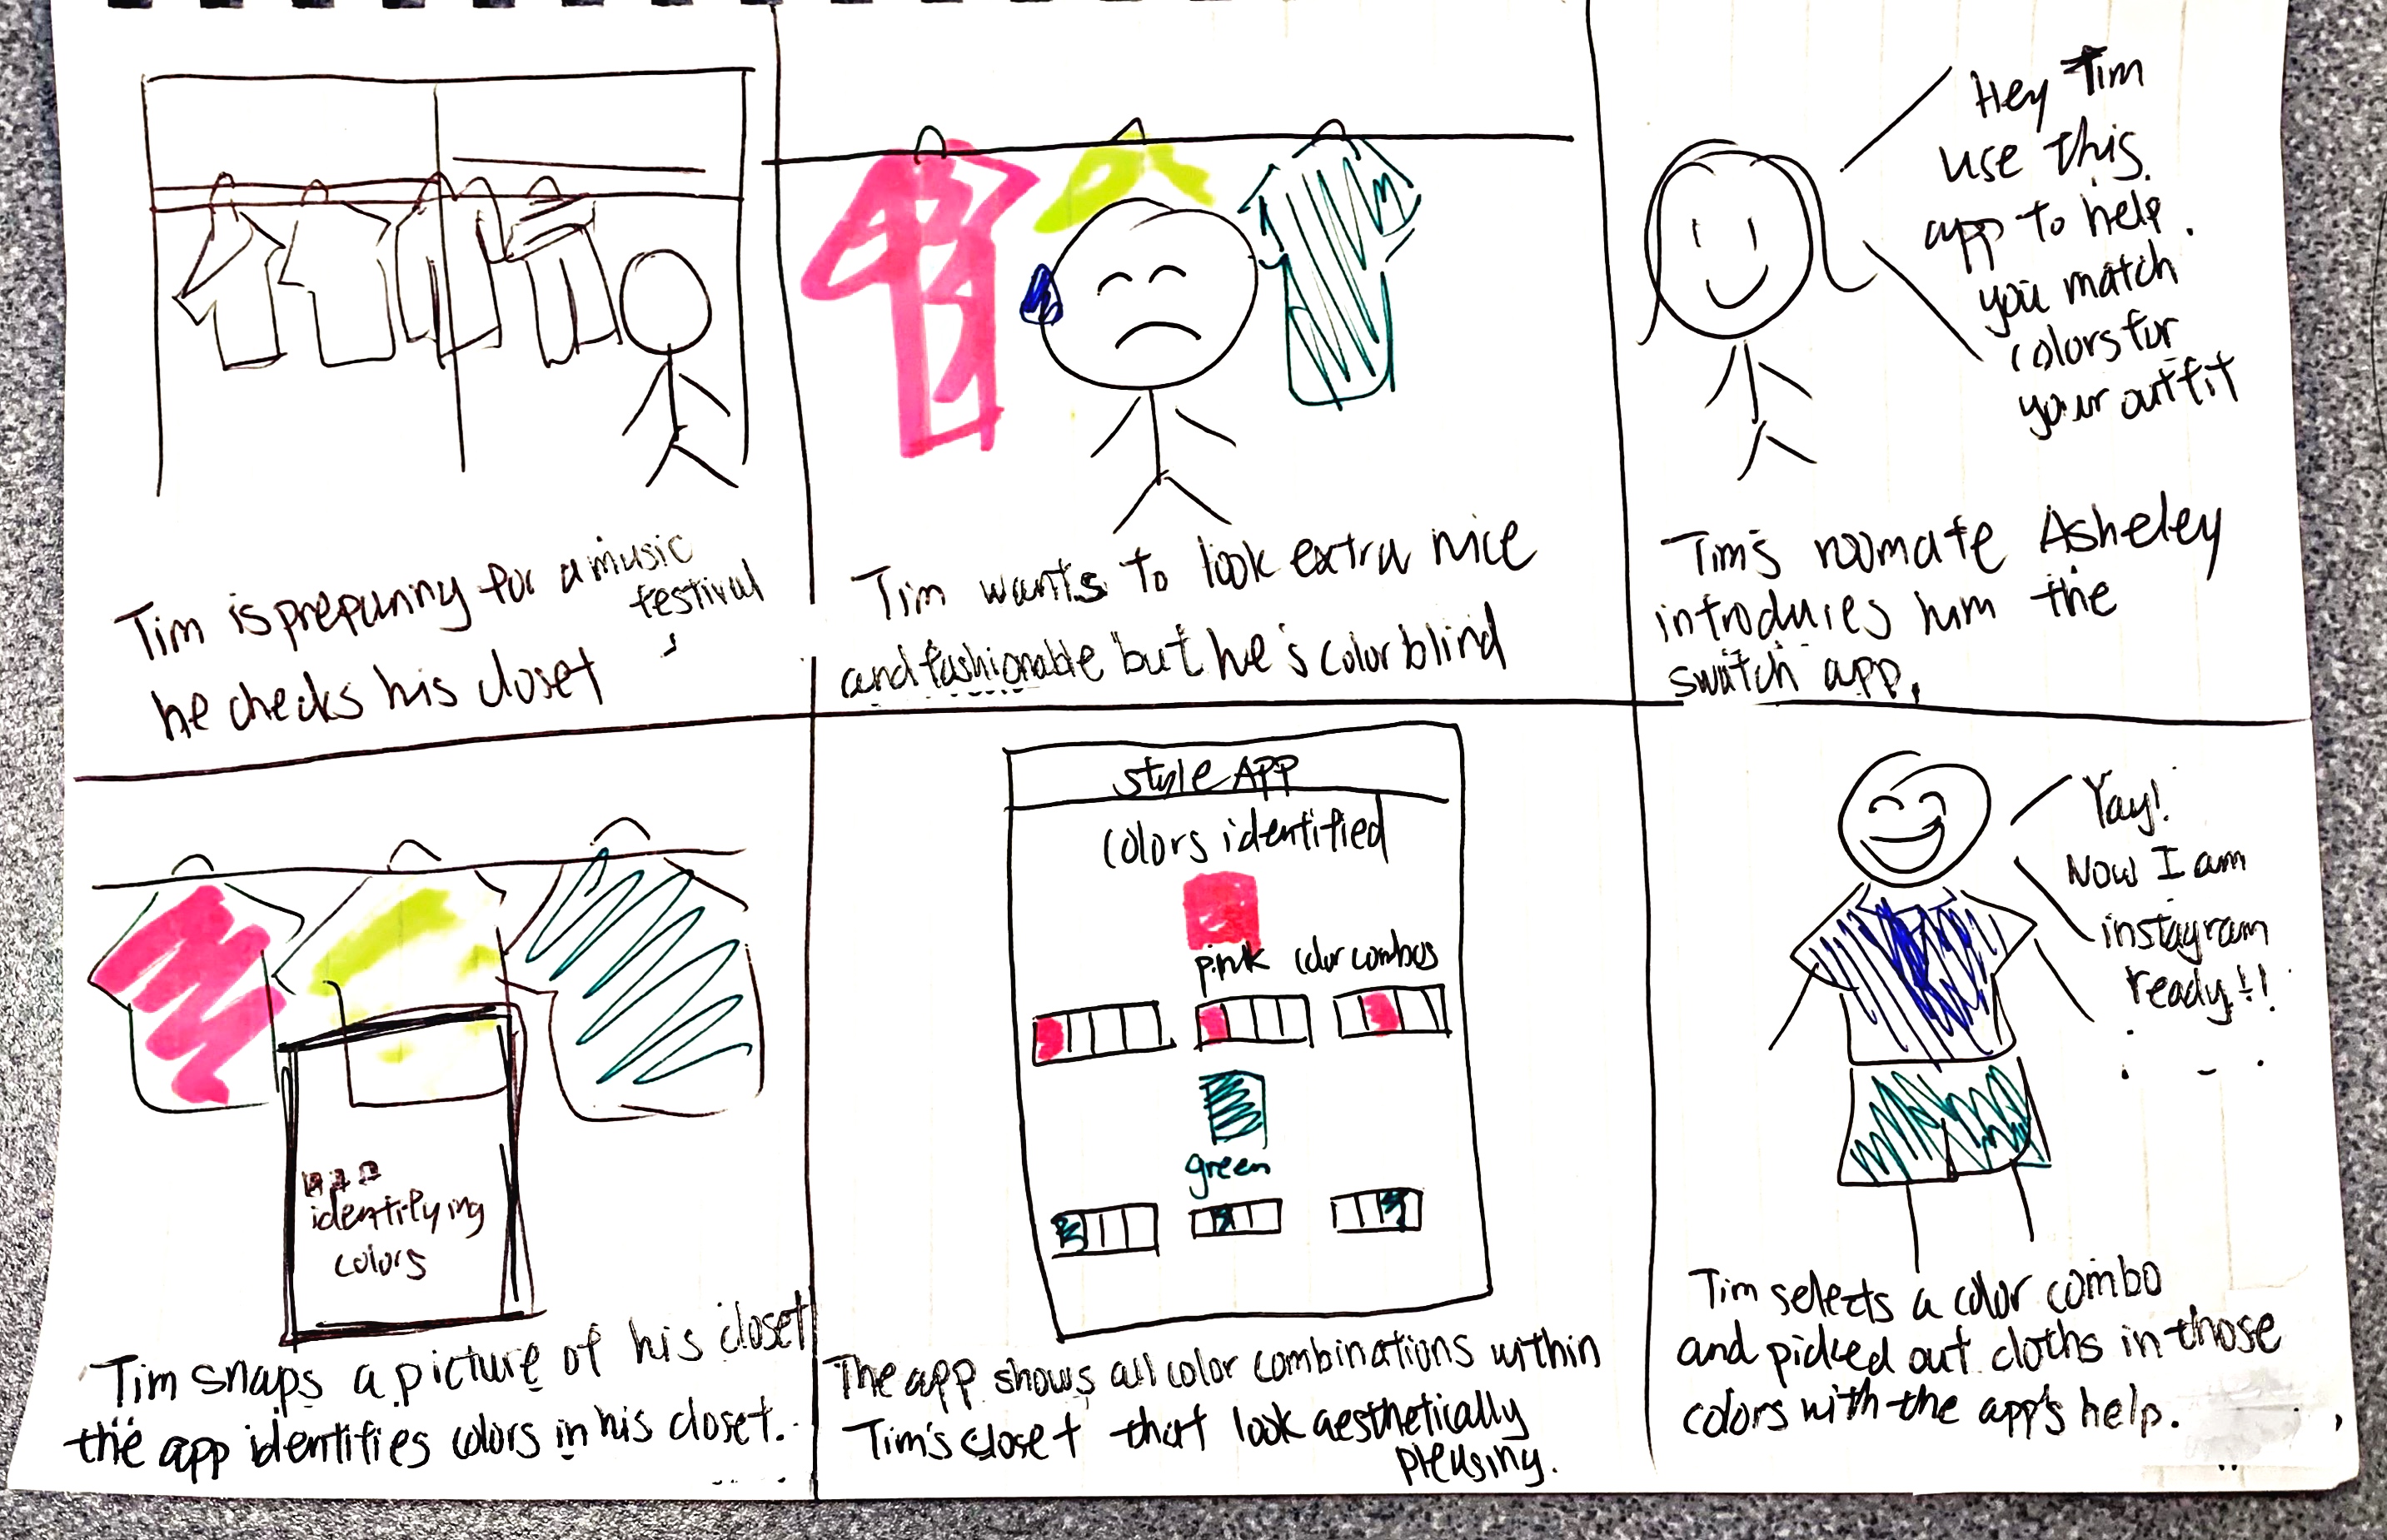 Tim is preparing for a music
festival,
he checks his closet
Tim wants to look extra nice
and fashionable but he's color blind
Hey Tim
use this
app to help
you match
colors for
your outfit
Tim's roomate Asheley
introduces him the
swatch app.
identifying
colors
Tim snaps a picture of his closet
the app identifies colors in his closet.
style APP
colors identified
pink color combos
green
The app shows all color combinations within
Tim's closet that look aesthetically
pleasing.
Yay!
Now I am
instagram
ready!!
Tim selects a color combo
and picked out cloths in those
colors with the app's help.